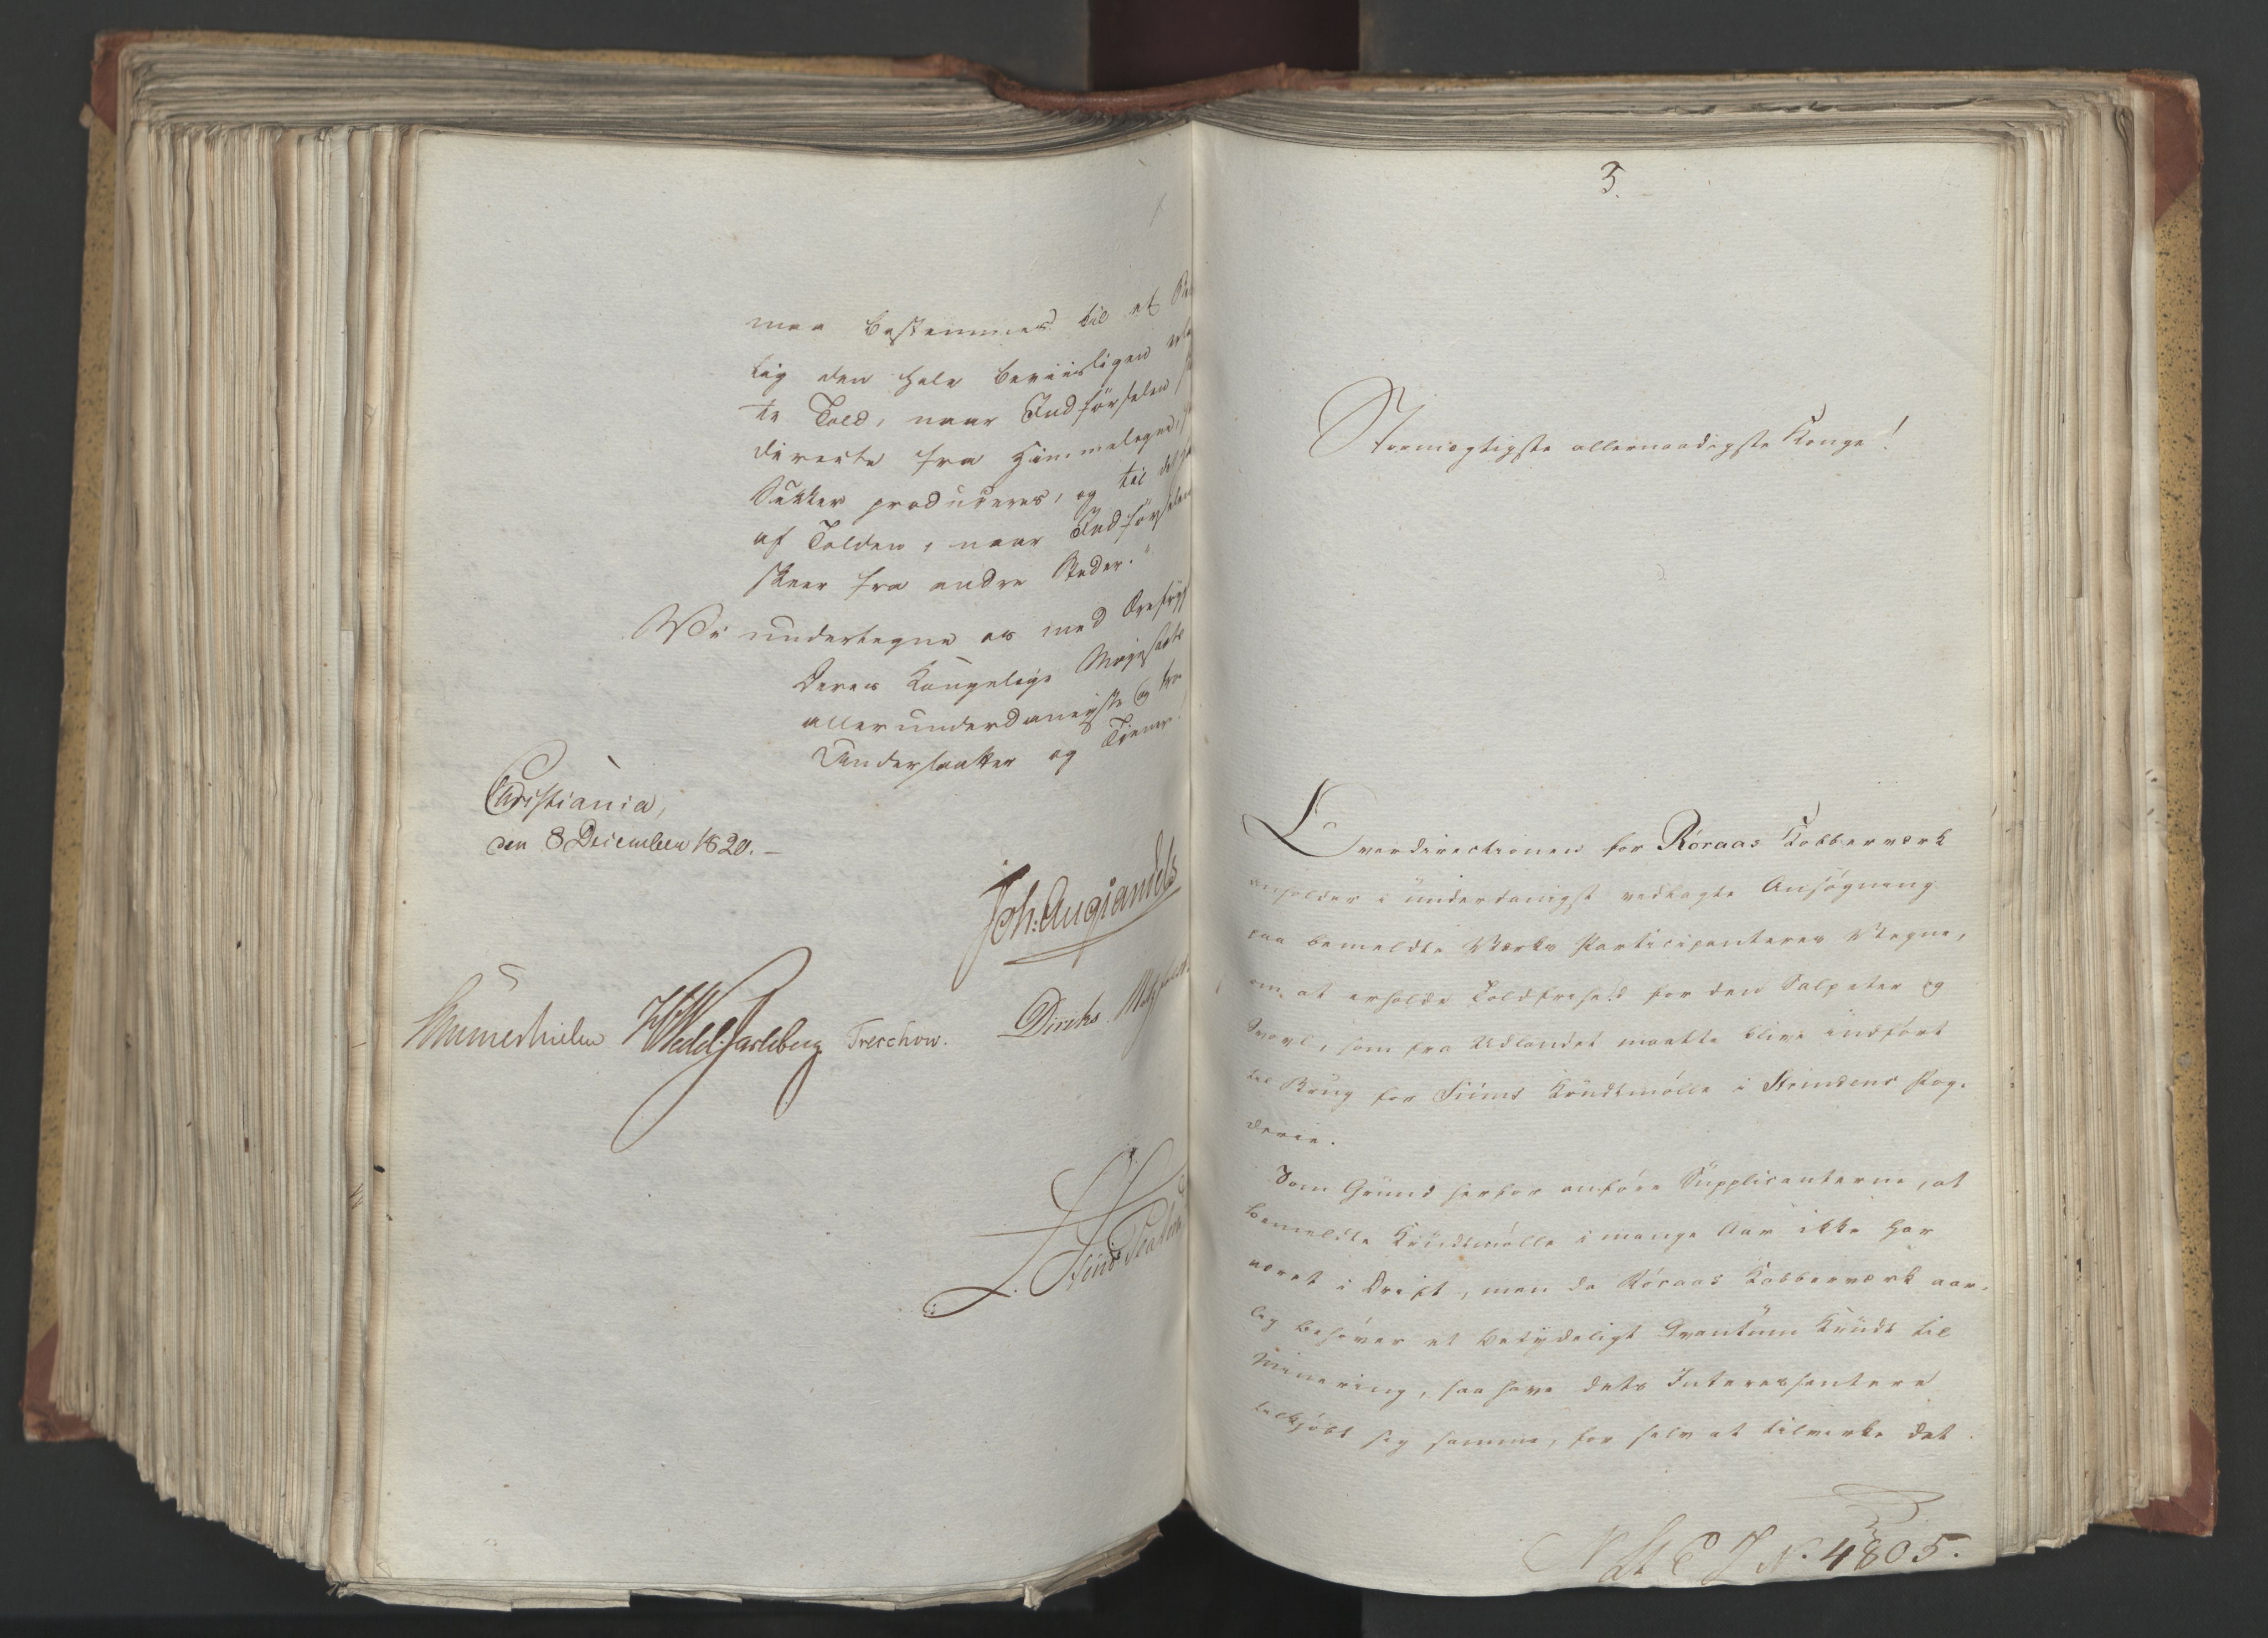 maa bestemmes til et
lig den hele beviisligen
te Told, naar Indførselen
directe fra Himmelegne,
Sukker produceres, og til det
af Tolden, naar Indførselen
skeer fra andre Steder."
Vi undertegne os med
Deres Kongelige Majestæts
allerunderdanigste og
Undersaatter og Tjenere
Christiania,
den 8 December 1820.
Joh: Aug: Sandels
Sommerhielm HWedelJarlsberg Treschow. Diriks. Motzfeldt
3.
Stormægtigste allernaadigste Konge!
Overdirectionen for Röraas Kobberværk
anholder i underdanigst vedlagte Ansögning
paa bemeldte Værks Participanteres Vegne,
om, at erholde Toldfrihed for den Salpeter og
Svovl, som fra Udlandet maatte blive indført
til Brug for Krudtmölle i Strindens Fog-
derie.
Som Grund herfor anføre Supplicanterne, at
bemeldte Krudtmölle i mange Aar ikke har
været i Drift, men da Röraas Kobberværk aar-
lig behöver et betydeligt Qvantum Krudt til
Minering, saa have dets Interessentere
tilkjøbt sig samme, for selv at tilvirke det
No. 4805.